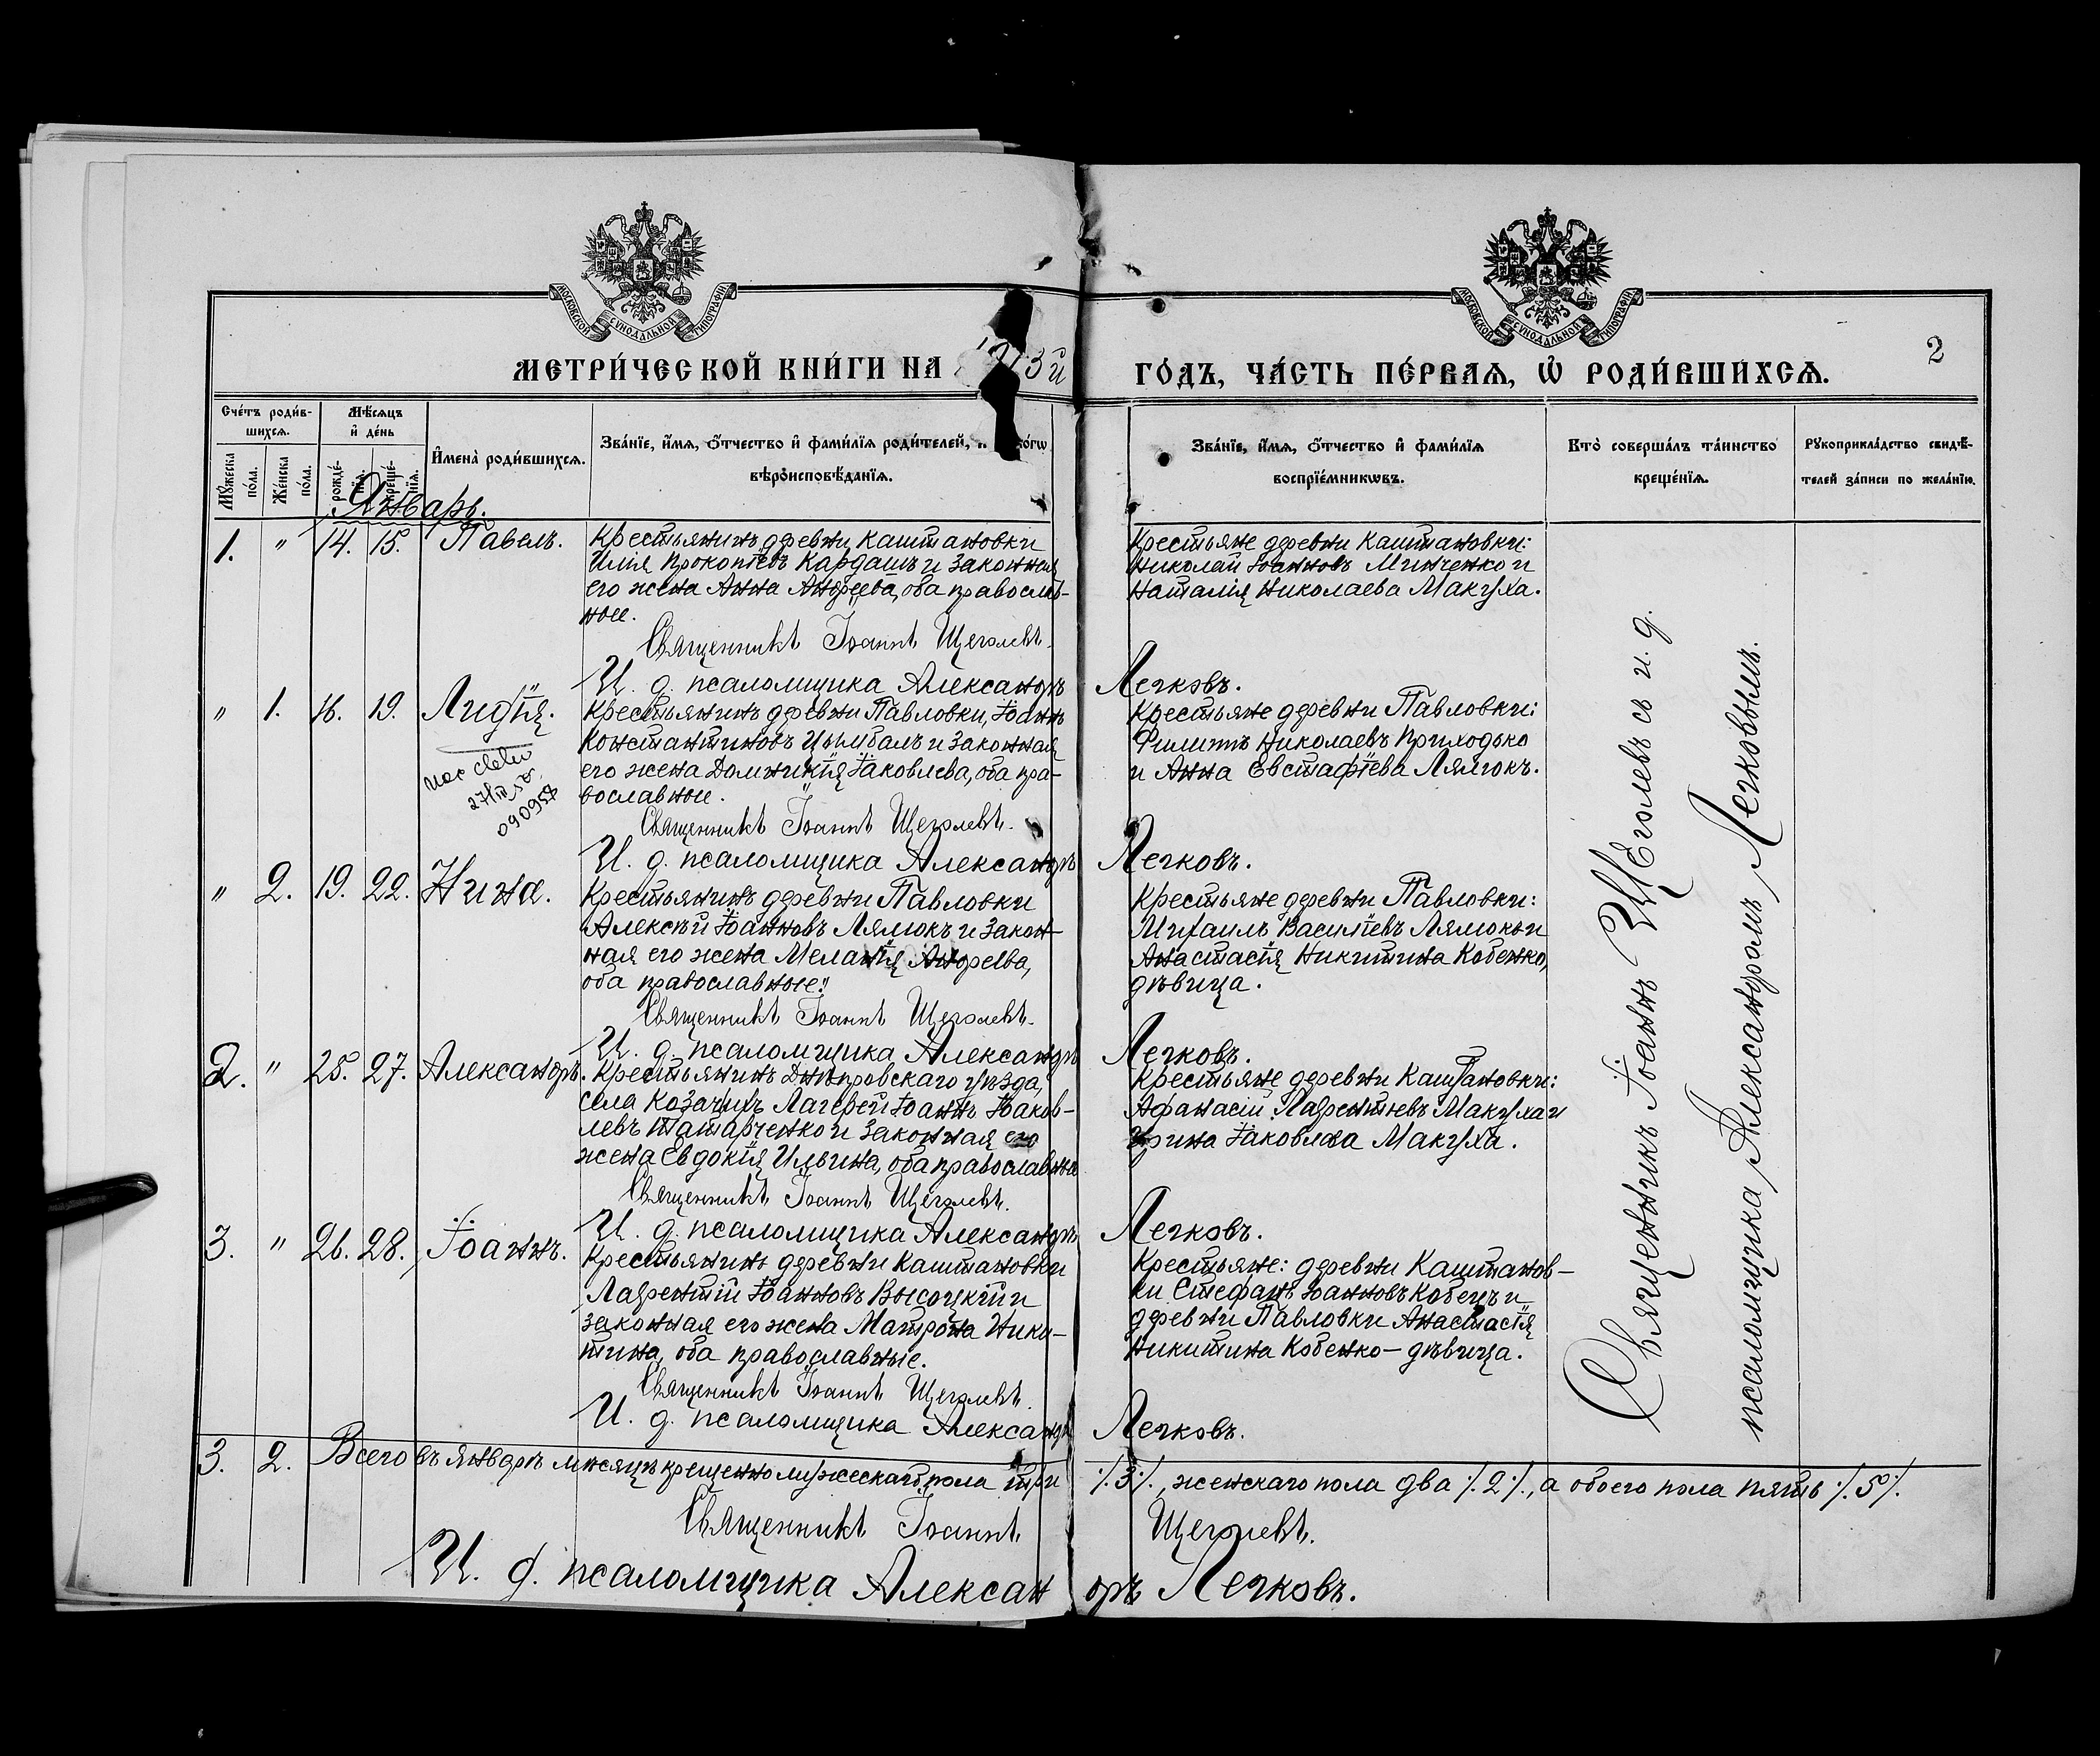 МОСКОВСКОЙ СѴНОДАЛЬНОЙ ТИПОГРАФІИ
МОСКОВСКОЙ СѴНОДАЛЬНОЙ ТИПОГРАФІИ
МЕТРИ́ЧЕСКОЙ КНИ́ГИ НА 1913й ГО́ДЪ, ЧА́СТЬ ПЕ́РВАѦ, Ѡ҆ РОДИ́ВШИХСѦ.
2
Сче́тъ роди́в-
шихсѧ.
Мѣ́сѧцъ
и҆ де́нь
И҆мена̀ роди́вшихсѧ.
Зва́нїе, и҆́мѧ, ѻ҆́тчество и҆ фами́лїѧ роди́телей,
вѣроисповѣ́данїѧ.
Зва́нїе, и҆́мѧ, ѻ҆́тчество и҆ фами́лїѧ
воспрїе́мникѡвъ.
Кто̀ соверша́лъ та́инство
креще́нїѧ.
Рꙋкоприкла́дство свидѣ́-
телей за́писи по жела́нїю.
Мꙋ́жеска
по́ла.
Же́нска
по́ла.
рожде́-
нїѧ.
креще́-
нїѧ.
Январь.
1. " 14. 15. Павелъ.
Крестьянинъ деревни Каштановки
Илія Прокопіевъ Кардашъ и законная
его жена Анна Андреева, оба православ-
ные.
Священникъ Іоаннъ Щеголевъ.
И. д. псаломщика Александръ Легковъ.
Крестьяне деревни Каштановки:
Николай Іоанновъ Минченко и
Наталія Николаева Макуха.
" 1. 16. 19. Лидія.
27/III
090957
Крестьянинъ деревни Павловки, Іоаннъ
Константиновъ Цымбалъ и законная
его жена Домникія Іаковлева, оба пра-
вославные.
Священникъ Іоаннъ Щеголевъ.
И. д. псаломщика Александръ Легковъ.
Крестьяне деревни Павловки:
Филиппъ Николаевъ Приходько
и Анна Евстафіева Лямюкъ.
" 2. 19. 22. Нина.
Крестьянинъ деревни Павловки
Алексѣй Іоанновъ Лямюкъ и закон-
ная его жена Меланія Андреева,
оба православные.
Священникъ Іоаннъ Щеголевъ.
И. д. псаломщика Александръ Легковъ.
Крестьяне деревни Павловки:
Михаилъ Василіевъ Лямюкъ и
Анастасія Никитина Кобенко,
дѣвица.
2. " 25. 27. Александръ.
Крестьянинъ Днѣпровскаго уѣзда,
села Козачихъ Лагерей Іоаннъ Іаков-
левъ Татарченко и законная его
жена Евдокія Ильина, оба православные
Священникъ Іоаннъ Щеголевъ.
И. д. псаломщика Александръ Легковъ.
Крестьяне деревни Каштановки:
Афанасій Лаврентіевъ Макуха и
Ирина Іаковлева Макуха.
3. " 26. 28. Іоаннъ.
Крестьянинъ деревни Каштановки
Лаврентій Іоанновъ Высоцкій и
законная его жена Матрона Ники-
тина, оба православные.
Священникъ Іоаннъ Щеголевъ.
И. д. псаломщика Александръ Легковъ.
Крестьяне: деревни Каштанов-
ки Стефанъ Іоанновъ Кобецъ и
деревни Павловки Анастасія
Никитина Кобенко - дѣвица.
Священникъ Іоаннъ Щеголевъ съ и. д.
псаломщика Александромъ Легковымъ.
3. 2. Всего въ январѣ мѣсяцѣ крещенно мужескаго пола три /.3./, женскаго пола два /.2./, а обоего пола пять /.5./.
Священникъ Іоаннъ Щеголевъ.
И. д. псаломщика Александръ Легковъ.